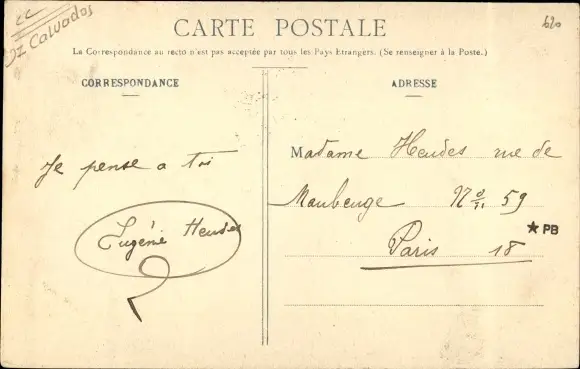 CARTE POSTALE
La Correspondance au recto n'est pas acceptée par tous les Pays Etrangers. (Se renseigner à la Poste.)
Calvados
620
CORRESPONDANCE
Je pense a toi
Eugéne Heudes
ADRESSE
Madame Heudes rue de
Maubeuge No 59
Paris 18
★ PB